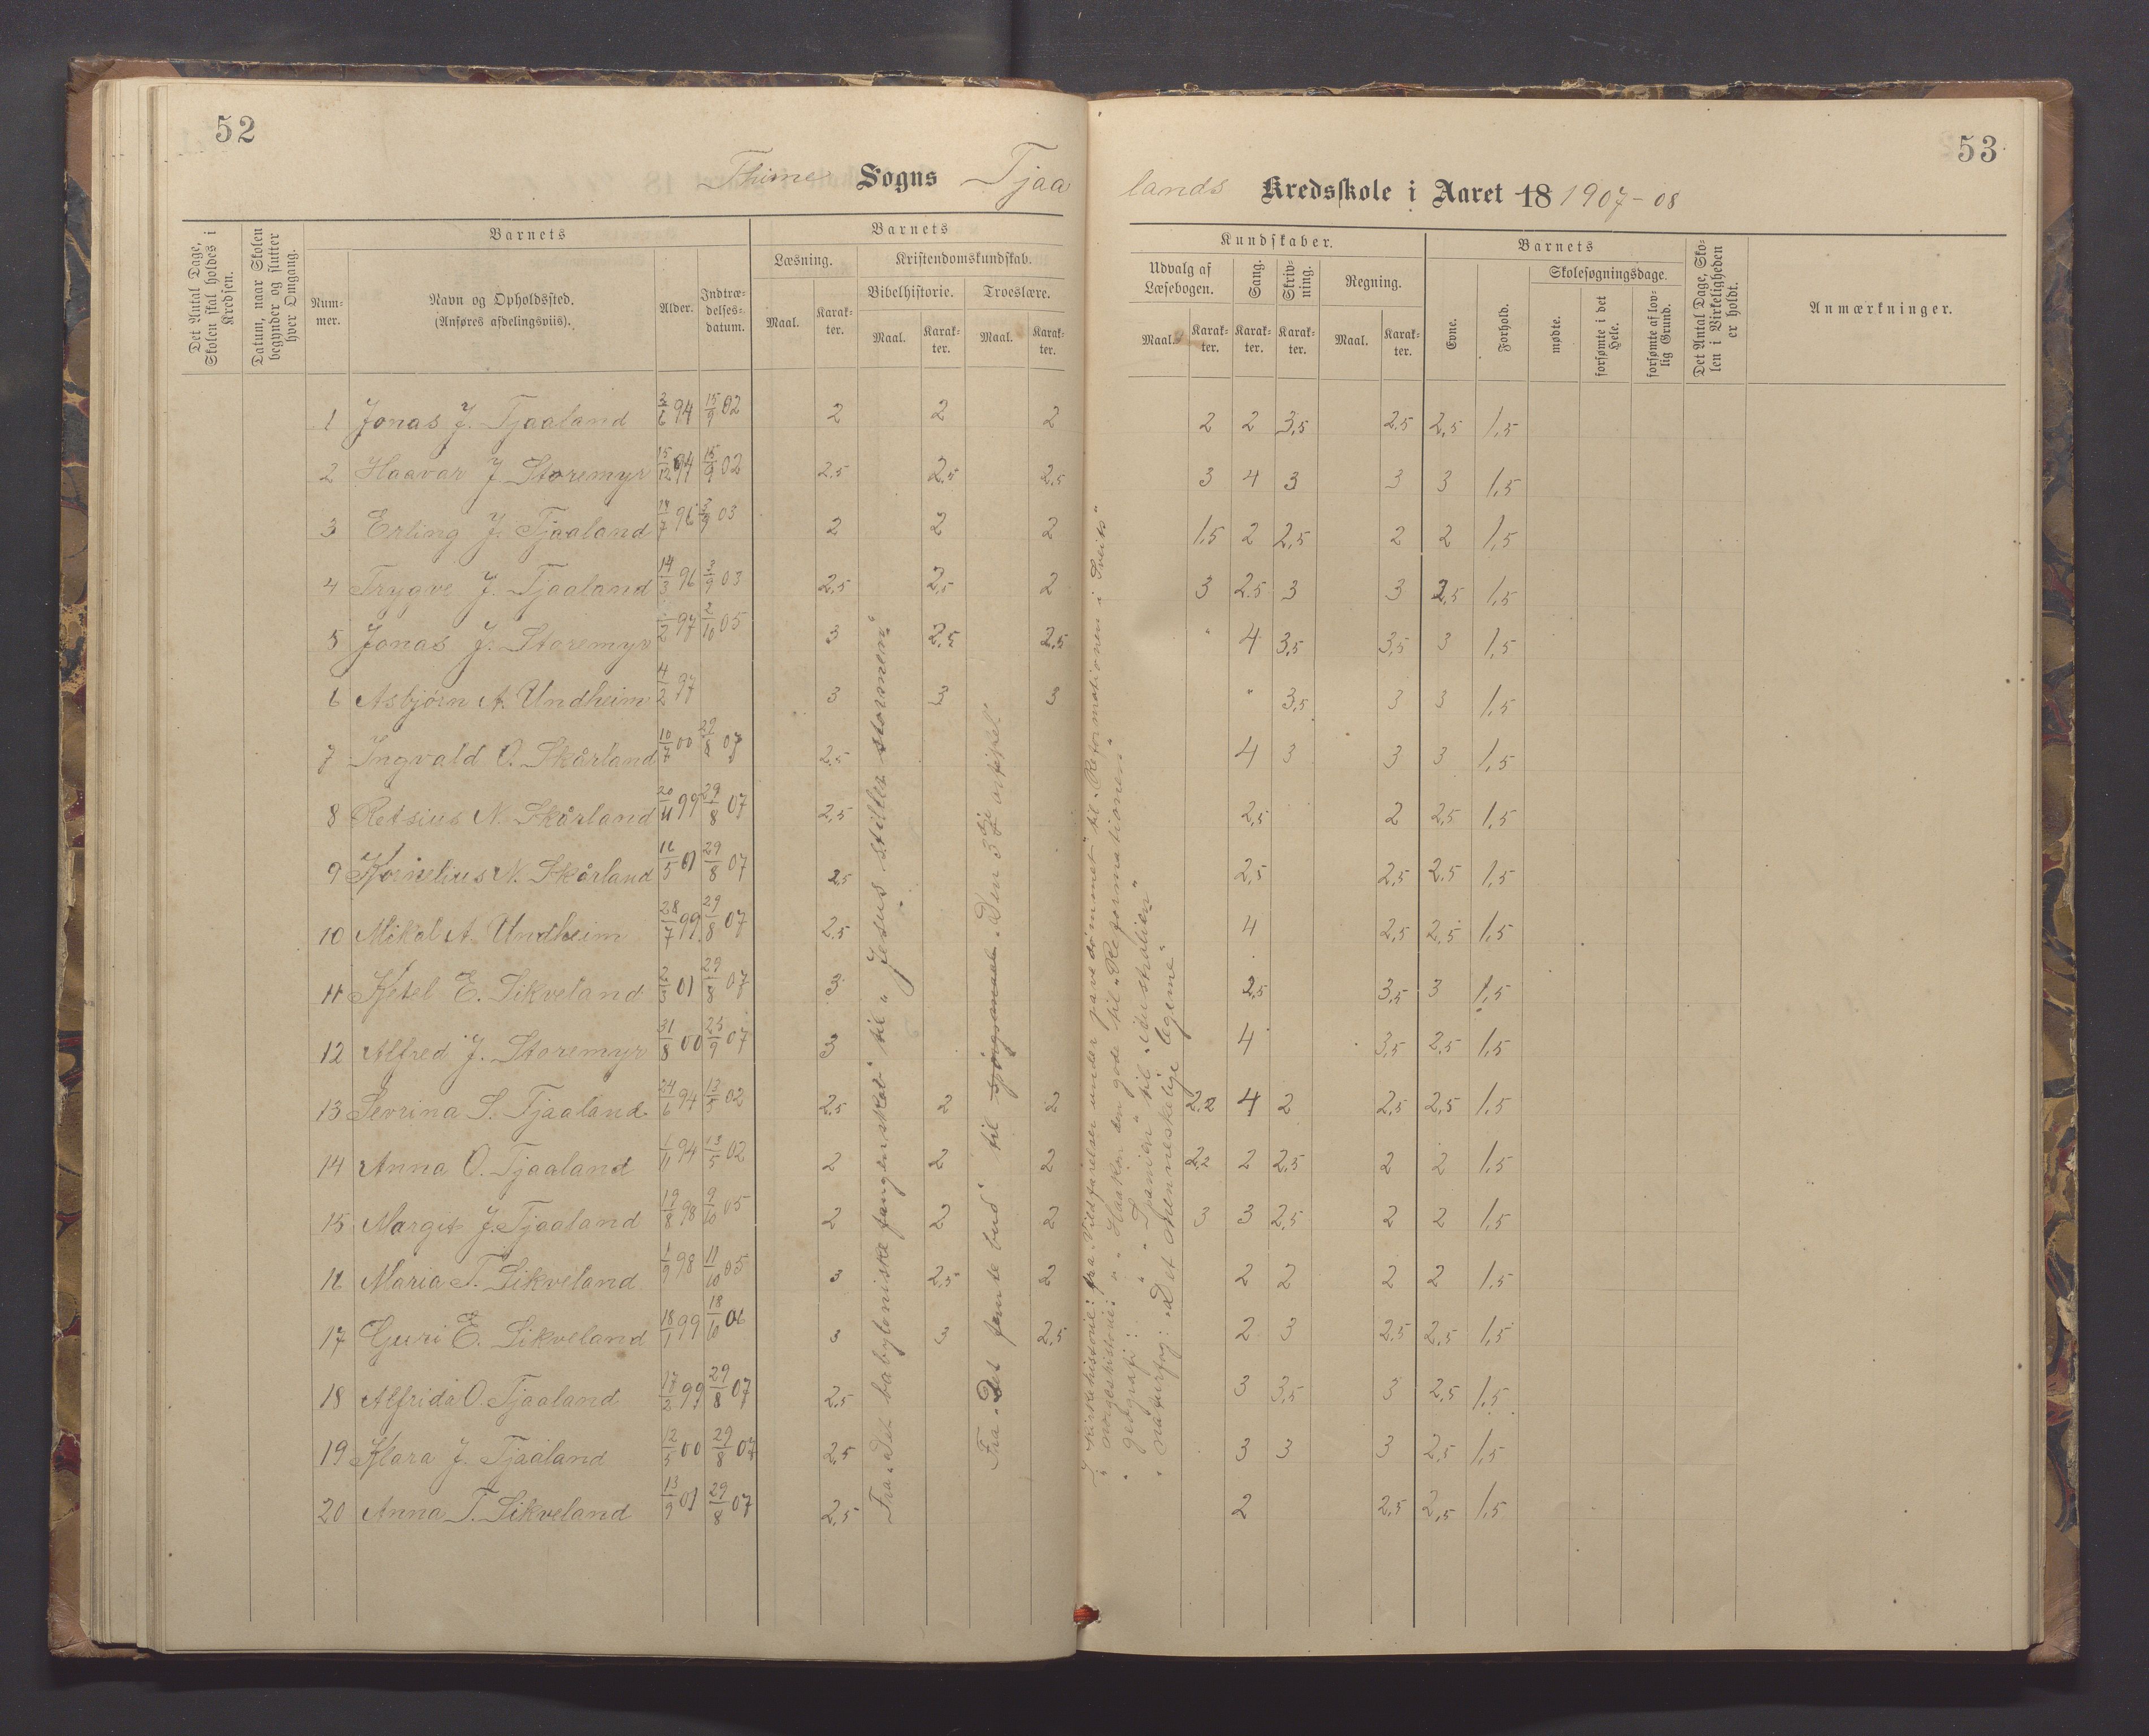 52
Thime Sogns Tjaa
Det Antal Dage, Skolen skal holdes i Kredsen.
Datum, naar Skolen begynder og slutter hver Omgang.
Barnets
Barnets
Num-
mer.
Navn og Opholdssted.
(Anføres afdelingsviis).
Alder.
Indtræ-
delses-
datum.
Læsning.
Kristendomskundskab.
Bibelhistorie.
Troeslære.
Maal.
Karak-
ter.
Maal.
Karak-
ter.
Maal.
Karak-
ter.
1 Jonas J. Tjaaland 3/6 94 15/9 02 2 2 2
2 Haavar J. Storemyr 15/12 94 15/9 02 2.5 2.5 2.5
3 Erling J. Tjaaland 96 03 2 2 2
4 Trygve J. Tjaaland 14/3 96 3/9 03 2.5 2.5 2
5 Jonas J. Storemyr 97 2/10 05 3 2.5 2.5
6 Asbjörn A. Undheim 4/2 97 3 3 3
7 Ingvald O. Skårland 10/7 00 29/8 07 2.5
8 Retsius N. Skårland 20/11 99 29/8 07 2.5
9 Kornelius N. Skårland 16/5 01 29/8 07 2.5
10 Mikal A. Undheim 28/7 99 29/8 07 2.5
11 Ketel E. Sikveland 2/3 01 29/8 07 3
12 Alfred J. Storemyr 31/8 00 25/9 07 3
13 Sevrina S. Tjaaland 24/6 94 13/5 02 2.5 2 2
14 Anna O. Tjaaland 1/11 94 13/5 02 2 2 2
15 Margit J. Tjaaland 19/8 98 9/10 05 2 2 2
16 Maria T. Sikveland 1/9 98 11/10 05 3 2.5 2
17 Guri E. Sikveland 18/1 99 18/10 06 3 3 2.5
18 Alfrida O. Tjaaland 99 29/8 07 2.5
19 Klara J. Tjaaland 12/5 00 29/8 07 2.5
20 Anna T. Sikveland 13/9 01 29/8 07 2.5
Fra „Det babyloniske fangenskab" til „Jesus stiller stormen"
Fra „Det femte bud" til spørgsmaal „Den 3die artikel."
53
lands Kredsskole i Aaret 18 1907-08
Kundskaber.
Barnets
Udvalg af
Læsebogen.
Sang.
Skriv-
ning.
Regning.
Evne.
Forhold.
Skolesøgningsdage.
mødte.
forsømte i det Hele.
forsømte af lov-
lig Grund.
Det Antal Dage, Sko-
len i Virkeligheden
er holdt.
Anmærkninger.
Maal.
Karak-
ter.
Karak-
ter.
Karak-
ter.
Maal.
Karak-
ter.
2 2 3,5 2.5 2,5 1,5
3 4 3 3 3 1,5
1,5 2 2,5 2 2 1,5
3 2.5 3 3 2,5 1,5
" 4 3,5 3,5 3 1,5
" 3,5 3 3 1,5
4 3 3 3 1,5
2,5 2 2,5 1,5
2,5 2,5 2.5 1,5
4 2,5 2.5 1,5
2,5 3,5 3 1,5
4 3,5 2,5 1,5
2.2 4 2 2,5 2,5 1,5
2.2 2 2,5 2 2 1,5
3 3 2,5 2 2 1,5
2 2 2 2 1,5
2 3 2,5 2,5 1,5
3 3,5 3 2,5 1,5
3 3 3 2,5 1,5
2 2,5 2,5 1,5
I kirkehistorie: fra „Vildfarelser under pavedömmet" til „Reformationen i Sveits"
" norgeshistorie: " „Haakon den gode" til „Reformationen"
" geografi: " „Spanien" til „Australien"
" naturfag: „Det Menneskelige legeme"